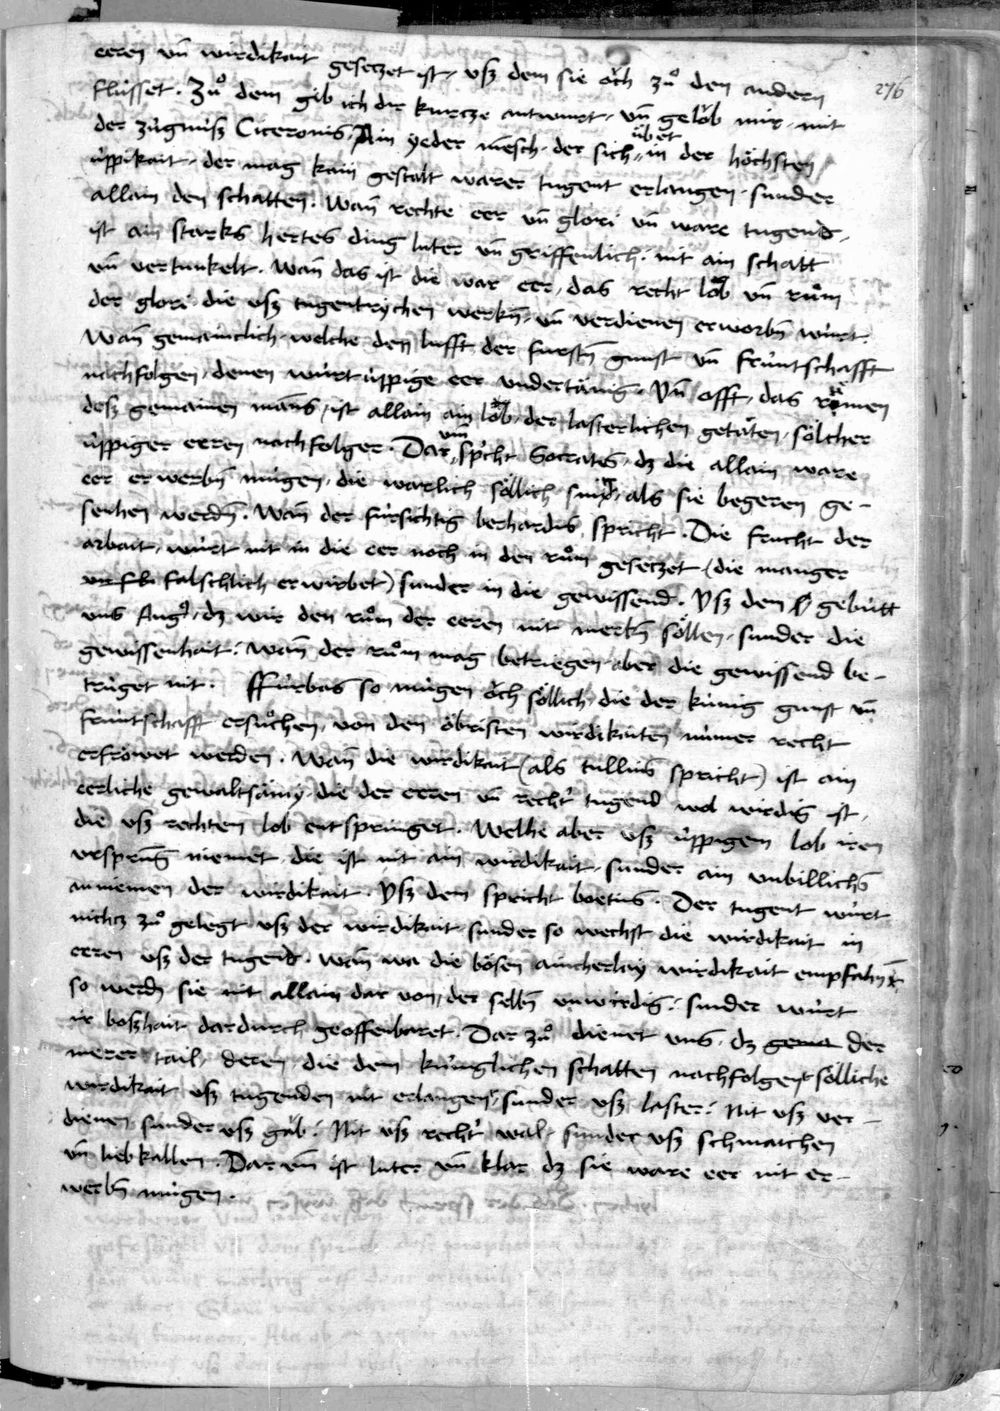 276
eeren vn̄ wirdikait gesetzet ist, vsz dem sie öch zů den andern
flüsset. Zů dem gib ich dir kurcze antwurt, vn̄ gelöb mir, mit
der zügnüsz Ciceronis, Ain yeder mēsch, der sich übet in der höchsten
üppikait, der mag kain gestalt warer tugent erlangen, sunder
allain den schatten. Wan̄ rechte eer vn̄ glori vn̄ ware tugend,
ist ain starks hertes ding luter vn̄ griffenlich, nit ain schatt
vn̄ vertunkelt. Wan̄ das ist die war eer, das recht lob vn̄ rům
der glori, die vsz tugentrychen werkn̄, vn̄ verdienen erworbn̄ würt.
Wan̄ gemainclich, welche den lufft der furstn̄ gunst vn̄ fruntschafft
nachfolgen, denen würt üppige eer vndertänig. Vn̄ offt, das römen
desz gemainen mans, ist allain ain lob, der lasterlichen getäten, sölcher
üppiger eeren nachfolger. Dar vm̄ spricht Socrates, dz die allain ware
eer erwerbn̄ mügen, die warlich söllich sind, als sie begeren ge-
sehen werdn̄. Wan̄ der fürsichtig berhardus spricht. Die frucht der
arbait, würt nit in die eer noch in den rům gesetzet (die manger
falschlich erwirbet) sunder in die gewissend. Vsz den gebütt
vns Augꝰ, dz wir den rům der eeren nit merkn̄ söllen, sunder die
gewissenhait. Wan̄ der rům mag betriegen, aber die gewissend be-
trüget nit. Fürbas so mügen öch söllich, die der künig gunst vn̄
fruntschafft ersůchen, von den öbristen wirdikaiten nimer recht
erfröwet werden. Wan̄ die wirdikait (als tullius spricht) ist ain
eerliche gewaltsamy, die der eeren vn̄ rechtꝰ tugend wol wirdig ist,
die vsz rechten lob entspringet. Welhe aber vsz üppigem lob iren
vrsprūg niemet, die ist nit ain wirdikait, sunder ain vnbillichs
anniemen der wirdikait. Vsz dem spricht boetius. Der tugent würt
nichtz zů gelegt vsz der wirdikait, sunder so wechst die wirdikait in
eeren vsz der tugend. Wan̄ wa die bösen aincherlay wirdikait empfahn̄
so werdn̄ sie nit allain dar von, der selbn̄ vnwirdig, sunder würt
ir boszhait dardurch geoffenbaret. Dar zů dienet vns, dz der
merer tail, deren, die dem künglichen schatten nachfolgen, sölliche
wirdikait vsz tugenden nit erlangen, sunder vsz laster. Nit vsz ver-
dienen, sunder vsz gäb. Nit vsz rechtꝰ wal, sunder vsz schmaichen
vn̄ liebkallen. Dar vm̄ ist luter vn̄ klar, dz sie ware eer nit er-
werbn̄ mügen.